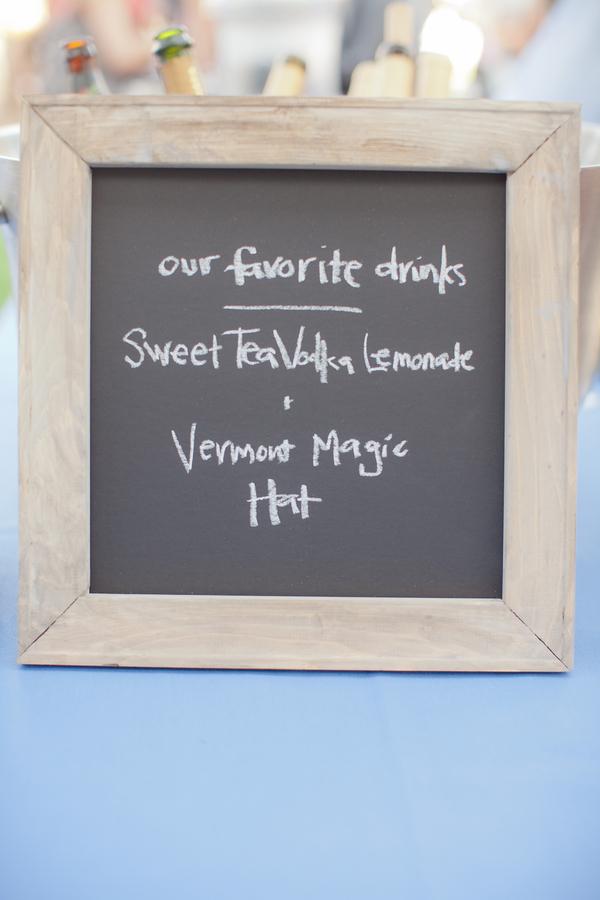 our favorite drinks
Sweet Tea Vodka Lemonade
+
Vermont Magic
Hat